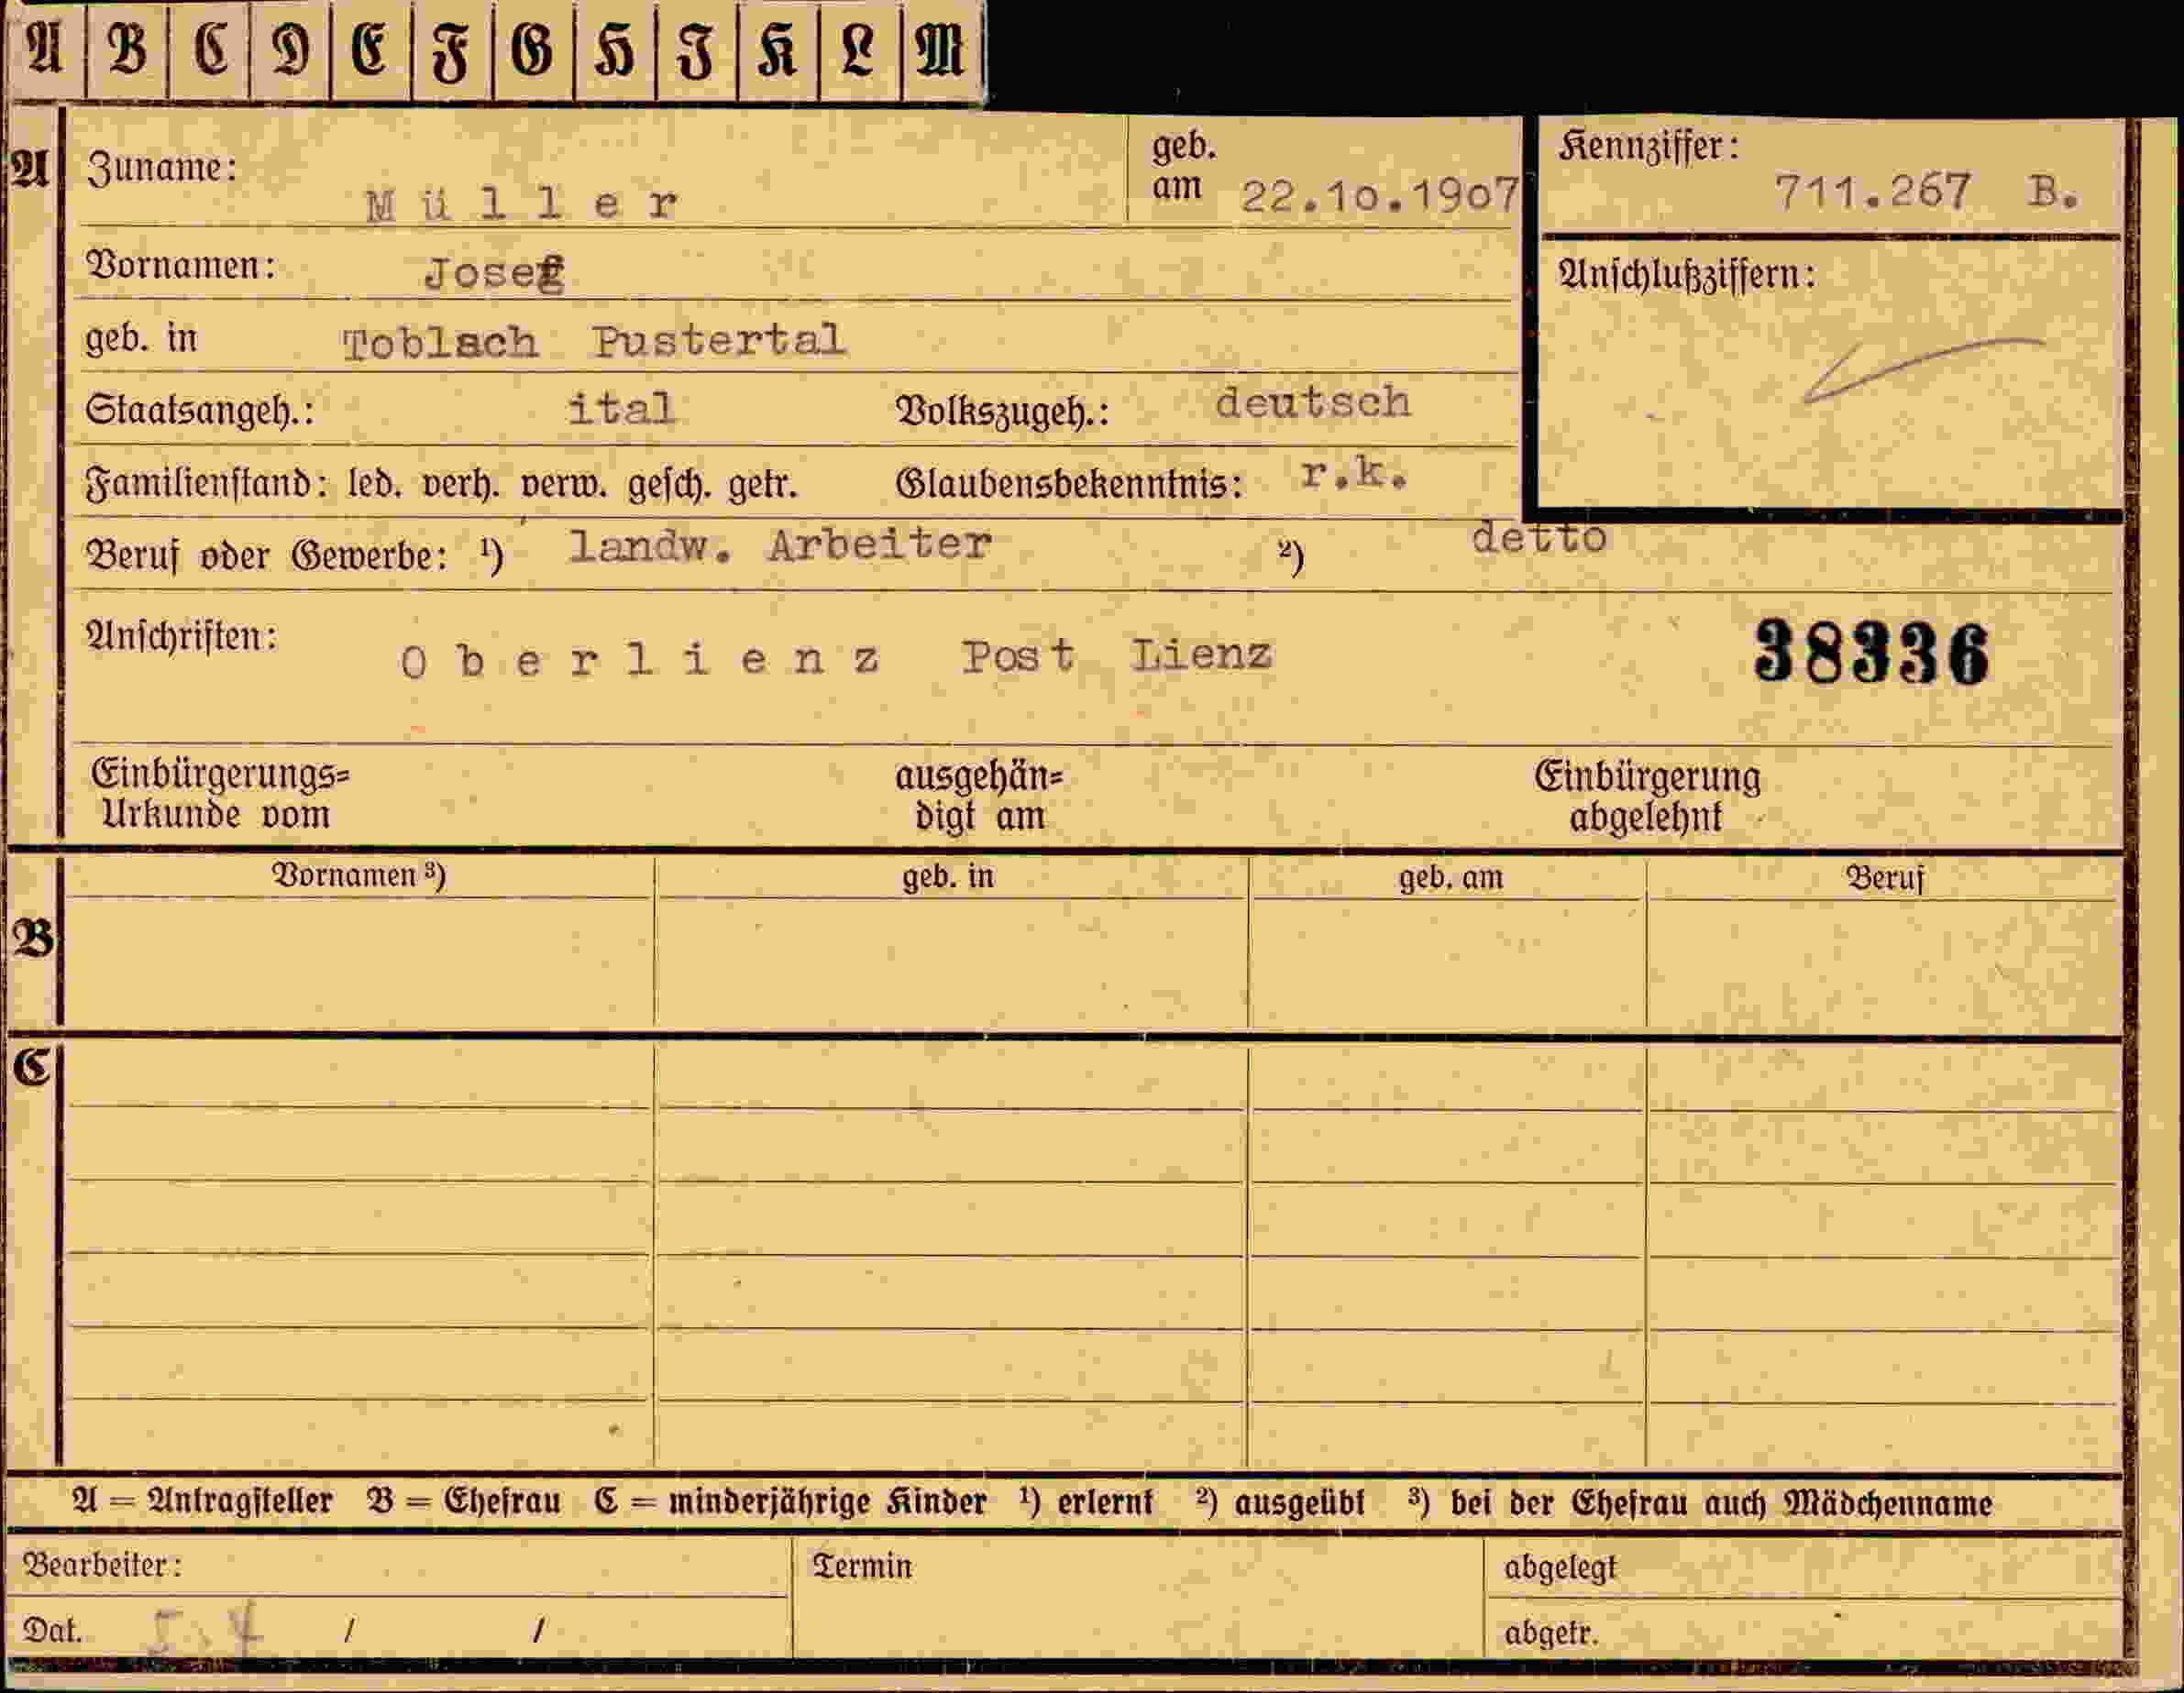 A B C D E F G H I K L M
A
Zuname: M ü l l e r geb. am 22.10.1907
Kennziffer: 711.267 B.
Vornamen: Josef
Anschlußziffern:
geb. in Toblach Pustertal
Staatsangeh.: ital Volkszugeh.: deutsch
Familienstand: led. verh. verw. gesch. getr. Glaubensbekenntnis: r.k.
Beruf oder Gewerbe: ¹) landw. Arbeiter ²) detto
Anschriften: O b e r l i e n z Post Lienz 38336
Einbürgerungs= ausgehän= Einbürgerung
Urkunde vom digt am abgelehnt
Vornamen ³) geb. in geb. am Beruf
B
C
A = Antragsteller B = Ehefrau C = minderjährige Kinder ¹) erlernt ²) ausgeübt ³) bei der Ehefrau auch Mädchenname
Bearbeiter: Termin abgelegt
Dat. 5.4 / / abgetr.